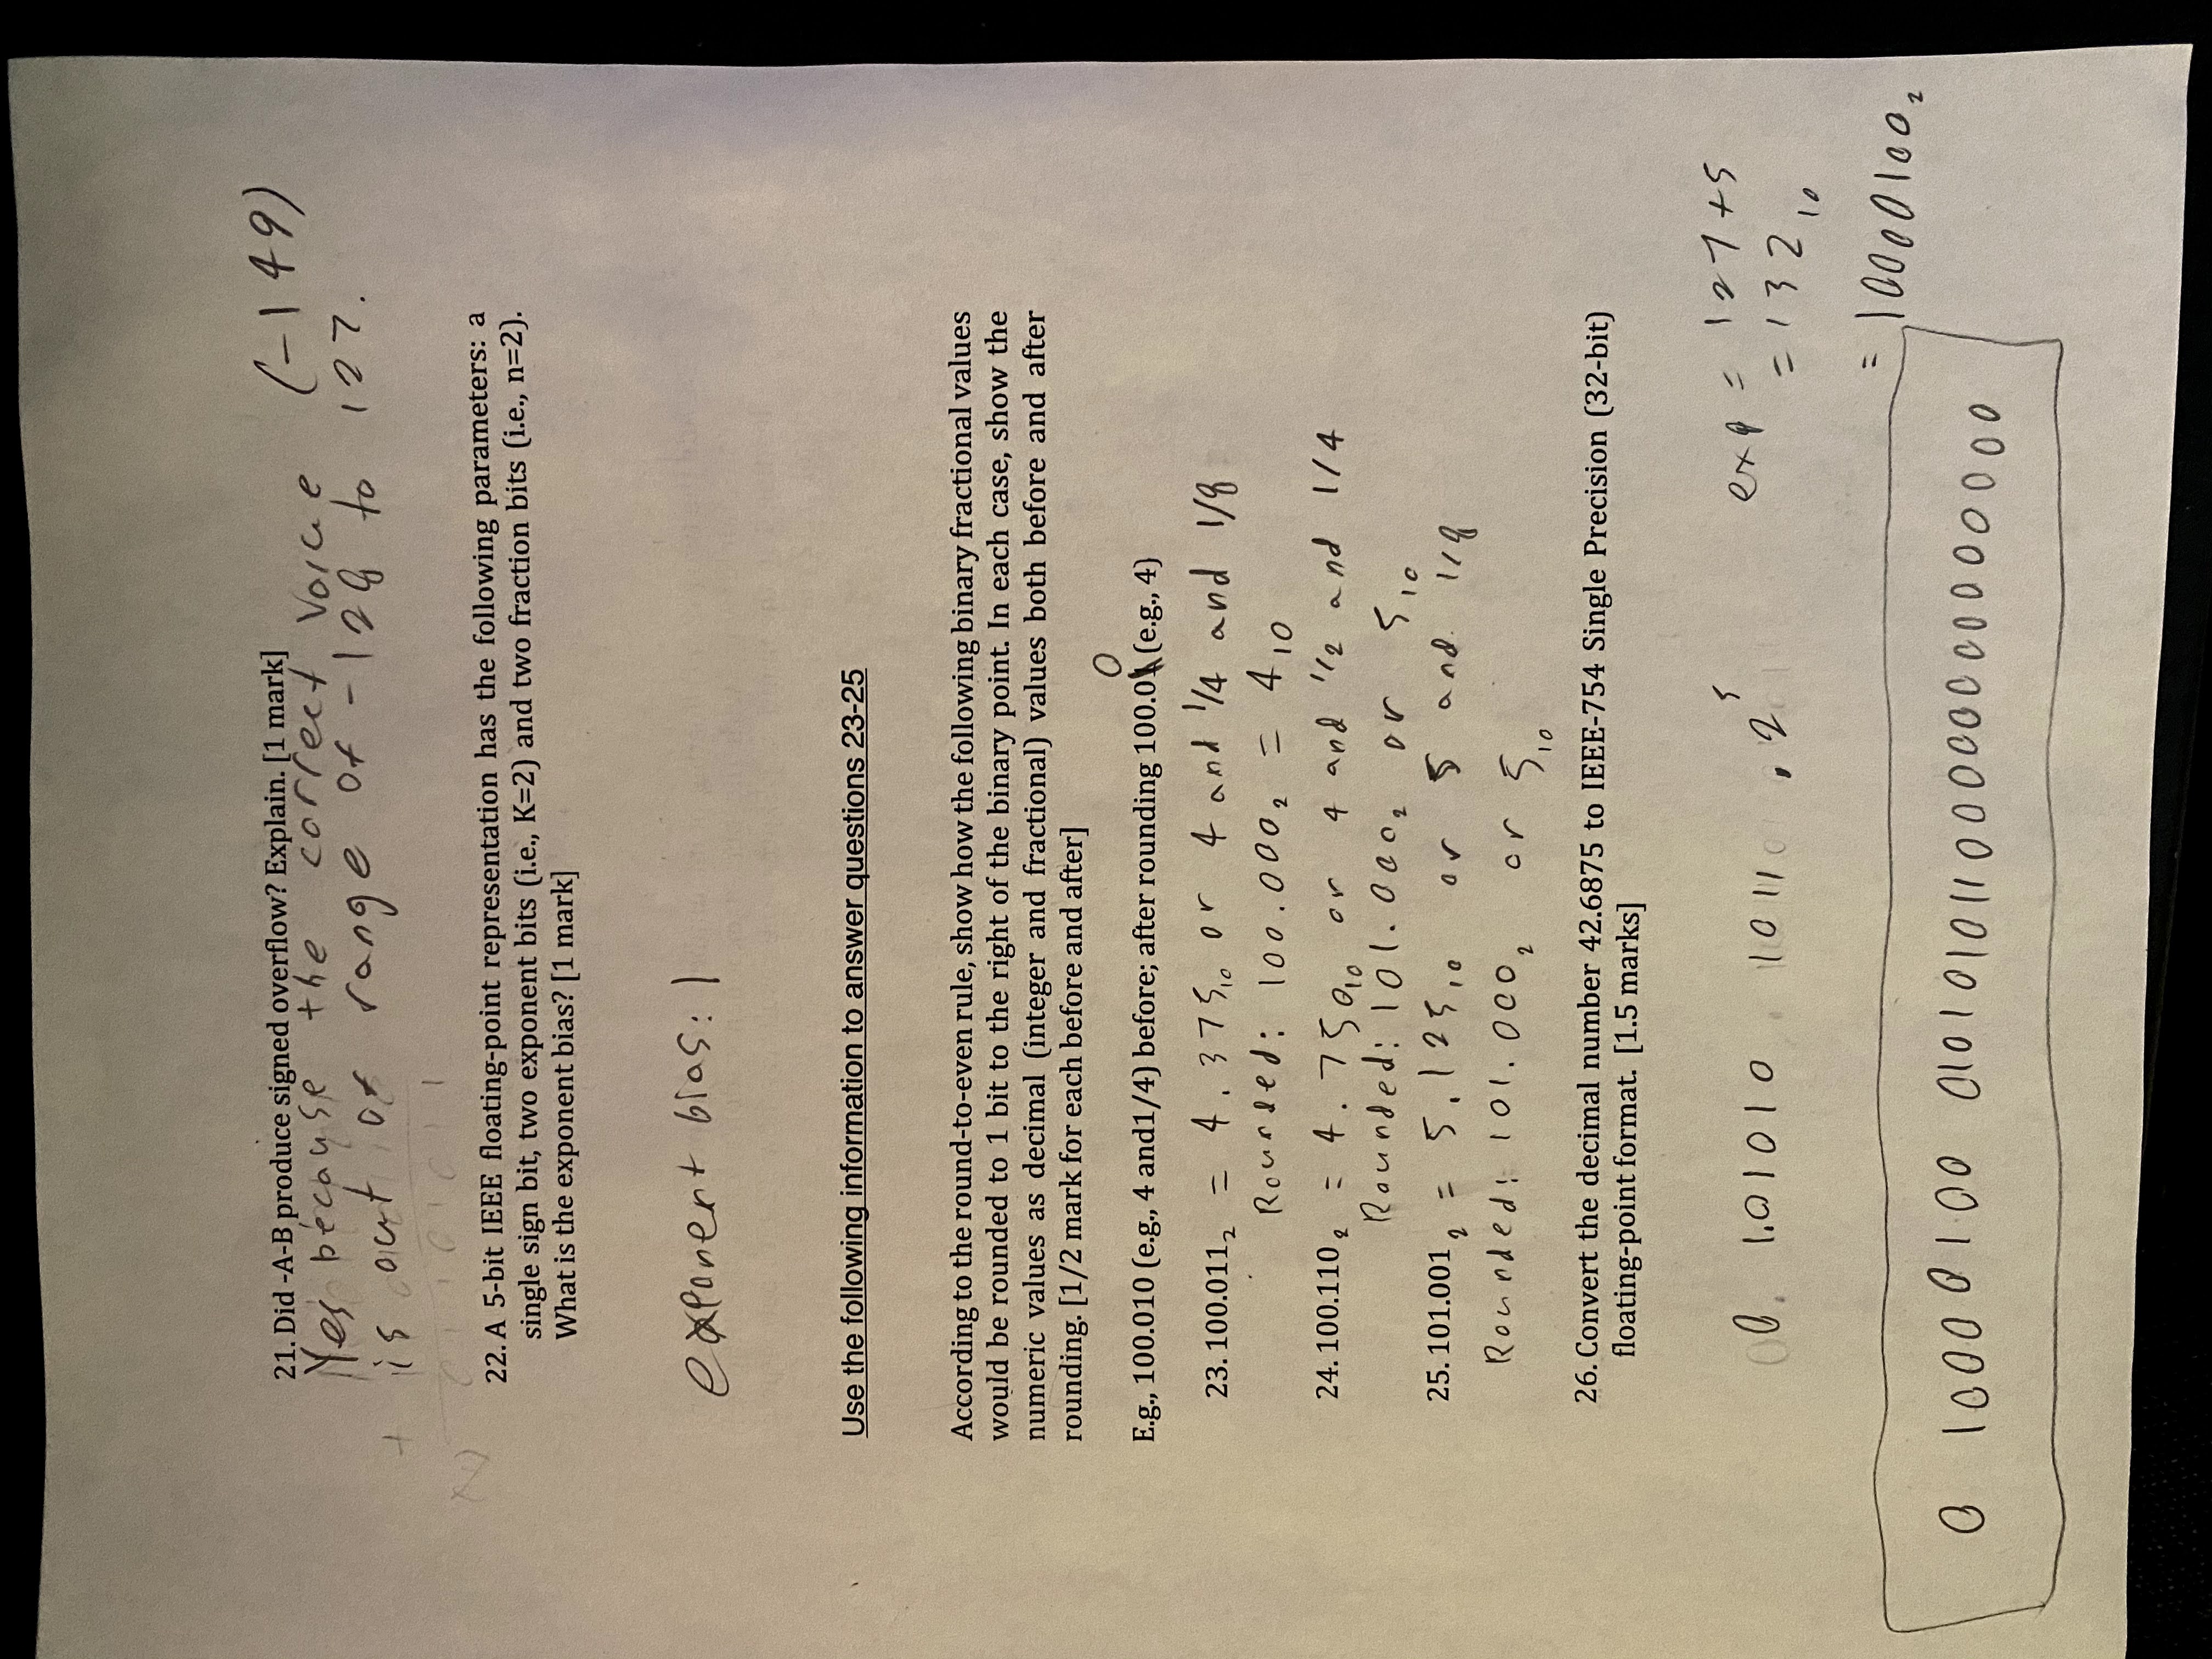 21. Did -A-B produce signed overflow? Explain. [1 mark]
Yes because the correct value (-149)
is out of range of -128 to 127.
22. A 5-bit IEEE floating-point representation has the following parameters: a
single sign bit, two exponent bits (i.e., K=2) and two fraction bits (i.e., n=2).
What is the exponent bias? [1 mark]
exponent bias: 1
Use the following information to answer questions 23-25
According to the round-to-even rule, show how the following binary fractional values
would be rounded to 1 bit to the right of the binary point. In each case, show the
numeric values as decimal (integer and fractional) values both before and after
rounding. [1/2 mark for each before and after]
0
E.g., 100.010 (e.g., 4 and1/4) before; after rounding 100.01 (e.g., 4)
23. 100.011₂ = 4.375₁₀ or 4 and 1/4 and 1/8
Rounded: 100.000₂ = 4₁₀
24. 100.110₂ = 4.750₁₀ or 4 and 1/2 and 1/4
Rounded: 101.000₂ or 5₁₀
25. 101.001₂ = 5.125₁₀ or 5 and 1/8
Rounded: 101.000₂ or 5₁₀
26. Convert the decimal number 42.6875 to IEEE-754 Single Precision (32-bit)
floating-point format. [1.5 marks]
0. 1.01010 1011 . 2⁵
exp = 127+5
= 132₁₀
= 10000100₂
0 10000100 01010101100000000000000